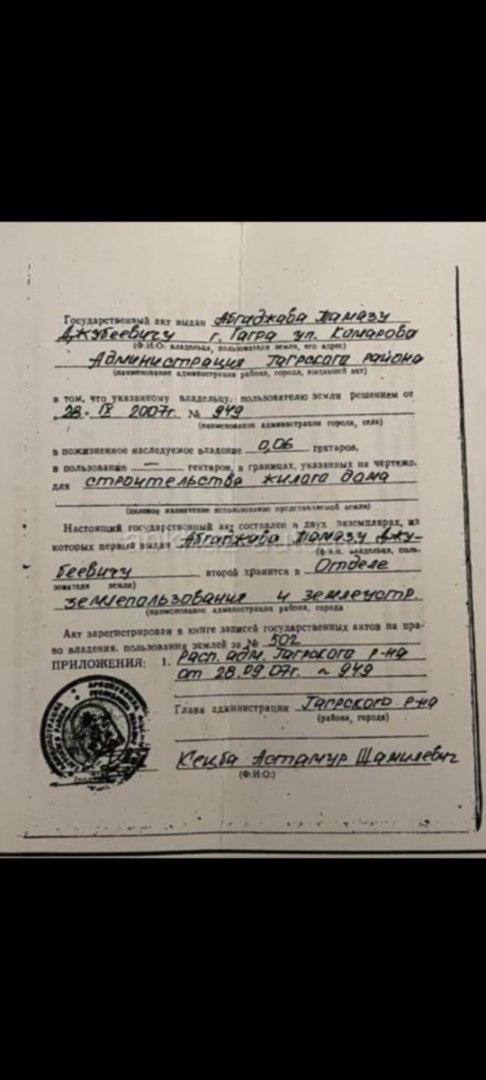 Государственный акт выдан Абгаджава Тамазу
Джубеевичу г. Гагра ул. Комарова
(Ф.И.О. владельца, пользователя земли, его адрес)
Администрация Гагрского района
(наименование администрации района, города, выдавшей акт)
в том, что указанному владельцу, пользователю земли решением от
28. IX 2007г. № 949
(наименование администрации города, села)
в пожизненное наследуемое владение 0,06 гектаров,
в пользование — гектаров, в границах, указанных на чертеже.
для строительства жилага дома
(целевое назначение использование представляемой земли)
Настоящий государственный акт составлен в двух экземплярах, из
которых первый выдан Абгаджава Тамазу Джу-
(ф.и.о. владельца, поль-
беевичу второй хранится в Отделе
зователя земли)
землепользования и землеустр.
(наименование администрации района, города
Акт зарегистрирован в книге записей государственных актов на пра-
во владения, пользования землей за № 502
ПРИЛОЖЕНИЯ: 1. Расп. адм. Гагрского р-на
от 28.09.07г. № 949
Глава администрации Гагрского р-на
(района, города)
Кецба Астамур Шамилевич
(Ф.И.О:)